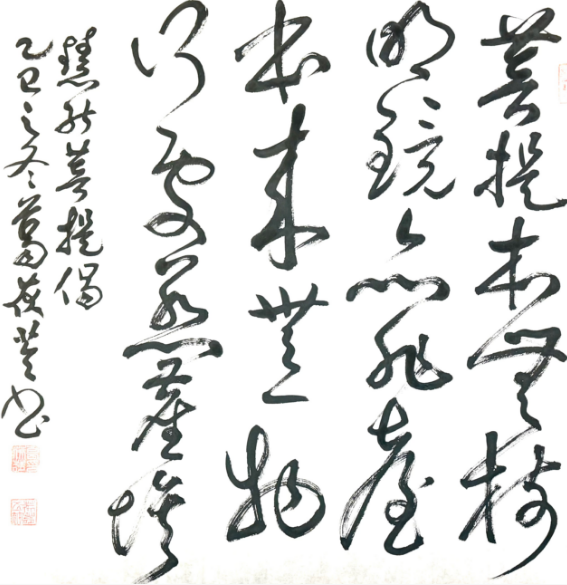 菩提本無樹
明鏡亦非臺
本來無一物
何處惹塵埃
慧能菩提偈
乙巳之冬葛書